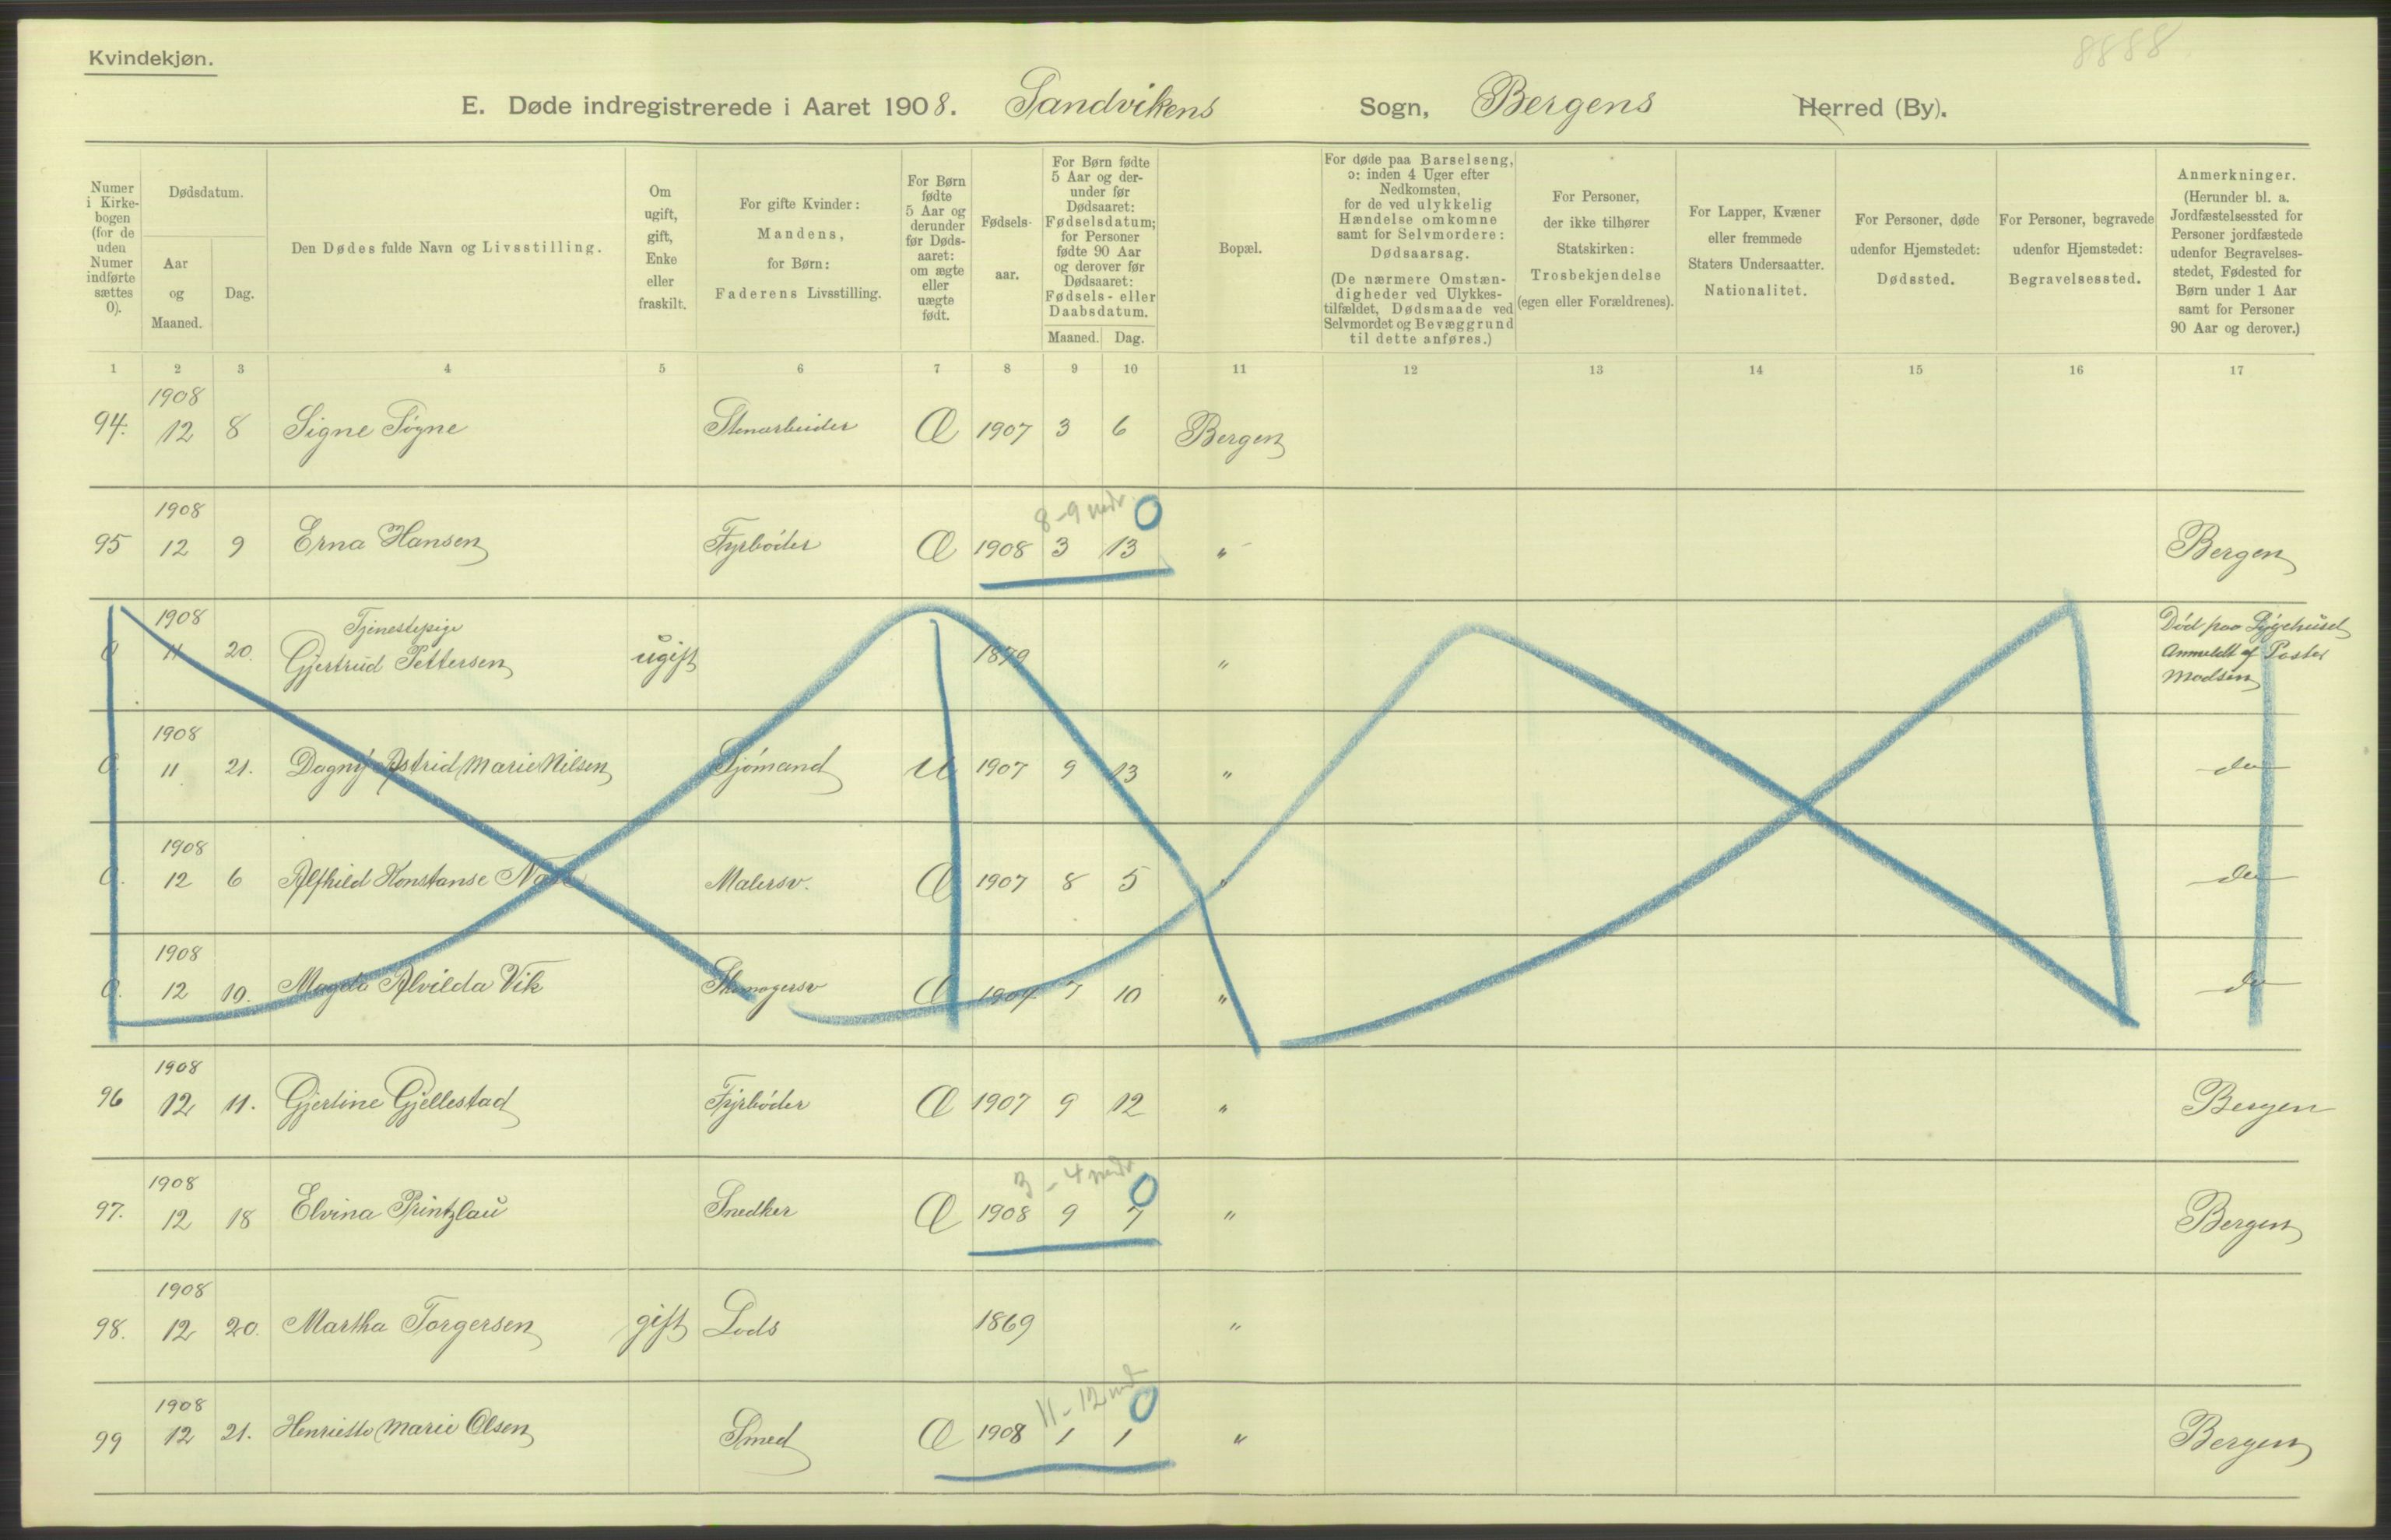 8888
Kvindekjøn.
E. Døde indregistrerede i Aaret 1908. Sandvikens Sogn, Bergens Herred (By).
Numer i Kirkebogen (for de uden Numer indførte sættes 0).
Dødsdatum.
Aar og Maaned.
Dag.
Den Dødes fulde Navn og Livsstilling.
Om ugift, gift, Enke eller fraskilt.
For gifte Kvinder: Mandens, for Børn: Faderens Livsstilling.
For Børn fødte 5 Aar og derunder før Dødsaaret: om ægte eller uægte født.
Fødselsaar.
For Børn fødte 5 Aar og derunder før Dødsaaret: Fødselsdatum; for Personer fødte 90 Aar og derover før Dødsaaret: Fødsels- eller Daabsdatum.
Maaned. Dag.
Bopæl.
For døde paa Barselseng, ɔ: inden 4 Uger efter Nedkomsten, for de ved ulykkelig Hændelse omkomne samt for Selvmordere: Dødsaarsag.
(De nærmere Omstændigheder ved Ulykkestilfældet, Dødsmaade ved Selvmordet og Bevæggrund til dette anføres.)
For Personer, der ikke tilhører Statskirken: Trosbekjendelse (egen eller Forældrenes).
For Lapper, Kvæner eller fremmede Staters Undersaatter. Nationalitet.
For Personer, døde udenfor Hjemstedet: Dødssted.
For Personer, begravede udenfor Hjemstedet: Begravelsessted.
Anmerkninger.
(Herunder bl. a. Jordfæstelsessted for Personer jordfæstede udenfor Begravelsesstedet, Fødested for Børn under 1 Aar samt for Personer 90 Aar og derover.)
1 2 3 4 5 6 7 8 9 10 11 12 13 14 15 16 17
94. 1908 12 8 Signe Søgne Stenarbeider Æ 1907 3 6 Bergen
8-9 mdr 0
95 1908 12 9 Erna Hansen Fyrbóder Æ 1908 3 13 " Bergen
0 1908 11 20. Tjenestepige Gjertrud Pettersen ugift 1879 " Død paa Sygehuset Anmeldt af Pastor Madsen
0. 1908 11 21. Dagny Astrid Marie Nilsen Sjómand U 1907 9 13 " do
0. 1908 12 6 Alfhild Konstanse Malersv. Æ 1907 8 5 " do
0. 1908 12 10. Magda Alvilda Vik Skomagersv Æ 1904 7 10 " do
96 1908 12 11. Gjertine Gjellestad Fyrbóder Æ 1907 9 12 " Bergen
3-4 mdr 0
97. 1908 12 18 Elvina Printzlau Snedker Æ 1908 9 7 " Bergen
98. 1908 12 20. Martha Torgersen gift Lods 1869 "
11-12 md 0
99 1908 12 21. Henriette Marie Olsen Smed Æ 1908 1 1 " Bergen